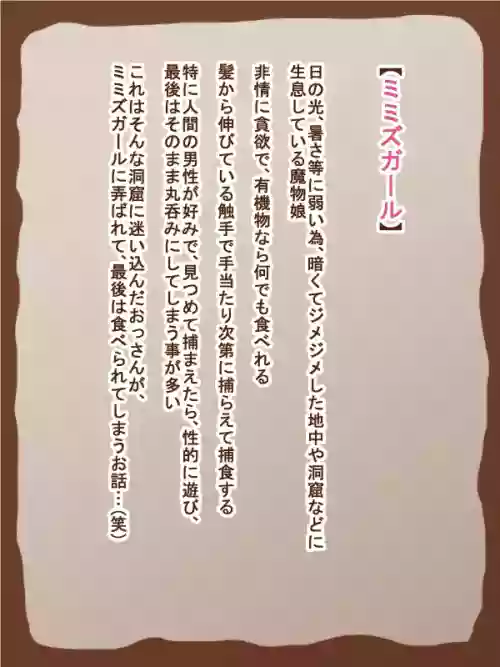 【ミミズガール】
日の光、暑さ等に弱い為、暗くてジメジメした地中や洞窟などに
生息している魔物娘
非情に貪欲で、有機物なら何でも食べれる
髪から伸びている触手で手当たり次第に捕らえて捕食する
特に人間の男性が好みで、見つめて捕まえたら、性的に遊び、
最後はそのまま丸呑みにしてしまう事が多い
これはそんな洞窟に迷い込んだおっさんが、
ミミズガールに弄ばれて、最後は食べられてしまうお話…(笑)